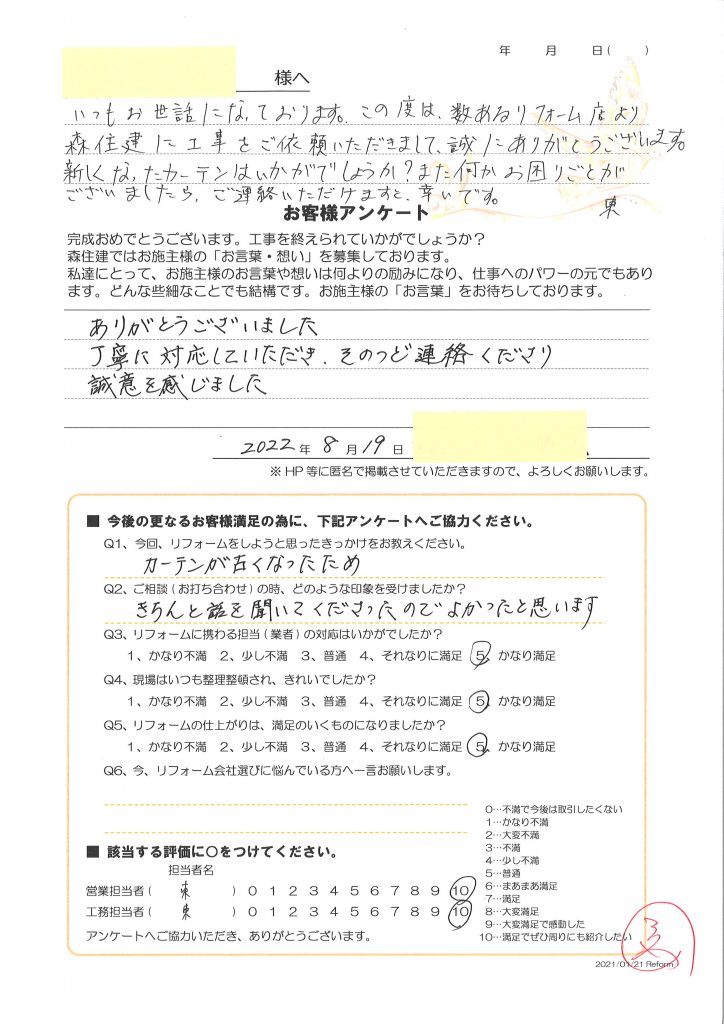 年 月 日( )
様へ
いつもお世話になっております。この度は、数あるリフォーム店より
森住建に工事をご依頼いただきまして、誠にありがとうございます。
新しくなったカーテンはいかがでしょうか?また何かお困りごとが
ございましたら、ご連絡いただけますと、幸いです。
東
お客様アンケート
完成おめでとうございます。工事を終えられていかがでしょうか?
森住建ではお施主様の「お言葉・想い」を募集しております。
私達にとって、お施主様のお言葉や想いは何よりの励みになり、仕事へのパワーの元でもあり
ます。どんな些細なことでも結構です。お施主様の「お言葉」をお待ちしております。
ありがとうございました
丁寧に対応していただき、そのつど連絡くださり
誠意を感じました
2022年 8月19日
※HP等に匿名で掲載させていただきますので、よろしくお願いします。
■ 今後の更なるお客様満足の為に、下記アンケートへご協力ください。
Q1、今回、リフォームをしようと思ったきっかけをお教えください。
カーテンが古くなったため
Q2、ご相談(お打ち合わせ)の時、どのような印象を受けましたか?
きちんと話を聞いてくださったのでよかったと思います
Q3、リフォームに携わる担当(業者)の対応はいかがでしたか?
1、かなり不満 2、少し不満 3、普通 4、それなりに満足 5、かなり満足
Q4、現場はいつも整理整頓され、きれいでしたか?
1、かなり不満 2、少し不満 3、普通 4、それなりに満足 5、かなり満足
Q5、リフォームの仕上がりは、満足のいくものになりましたか?
1、かなり不満 2、少し不満 3、普通 4、それなりに満足 5、かなり満足
Q6、今、リフォーム会社選びに悩んでいる方へ一言お願いします。
■ 該当する評価に〇をつけてください。
担当者名
営業担当者( 東 ) 0 1 2 3 4 5 6 7 8 9 10
工務担当者( 東 ) 0 1 2 3 4 5 6 7 8 9 10
アンケートへご協力いただき、ありがとうございます。
0…不満で今後は取引したくない
1…かなり不満
2…大変不満
3…不満
4…少し不満
5…普通
6…まあまあ満足
7…満足
8…大変満足
9…大変満足で感動した
10…満足でぜひ周りにも紹介したい
2021/01/21 Reform